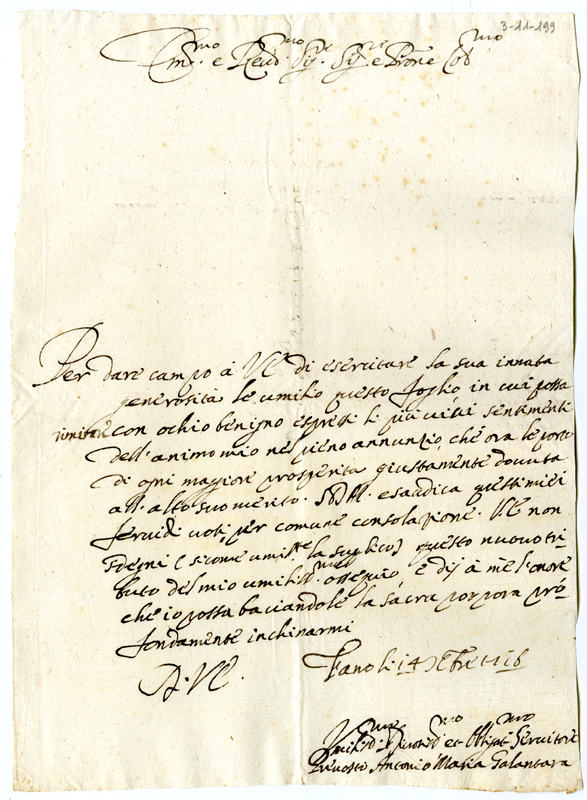 3-11-199
Em.mo e Reud.mo Sig.r Sig.r e Prõne Col.mo
Per dare campo à VE di esercitare la sua innata
generosità le umilio questo foglio in cui possa
rimirare con ochio benigno espressi li più vivi sentimenti
dell'animo mio nel pieno annunzio, che ora le porto
di ogni magiore prosperità giustamente dovuta
all'alto suo merito. esaudica questi miei
fervidi voti per comune consolazione. VE non
sdegni (sicome umil.te la suplico) questo nuovo tri-
buto del mio umiliss.mo ossequio, e dij à me l'onore
che io possa baciandole la sacra porpora prò-
fondamente inchinarmi
D. VE.
Fano li 14
Umiliss.mo Devotiss.mo et Obligat.mo Servitore
Prevosto Antonio Maria Galantara